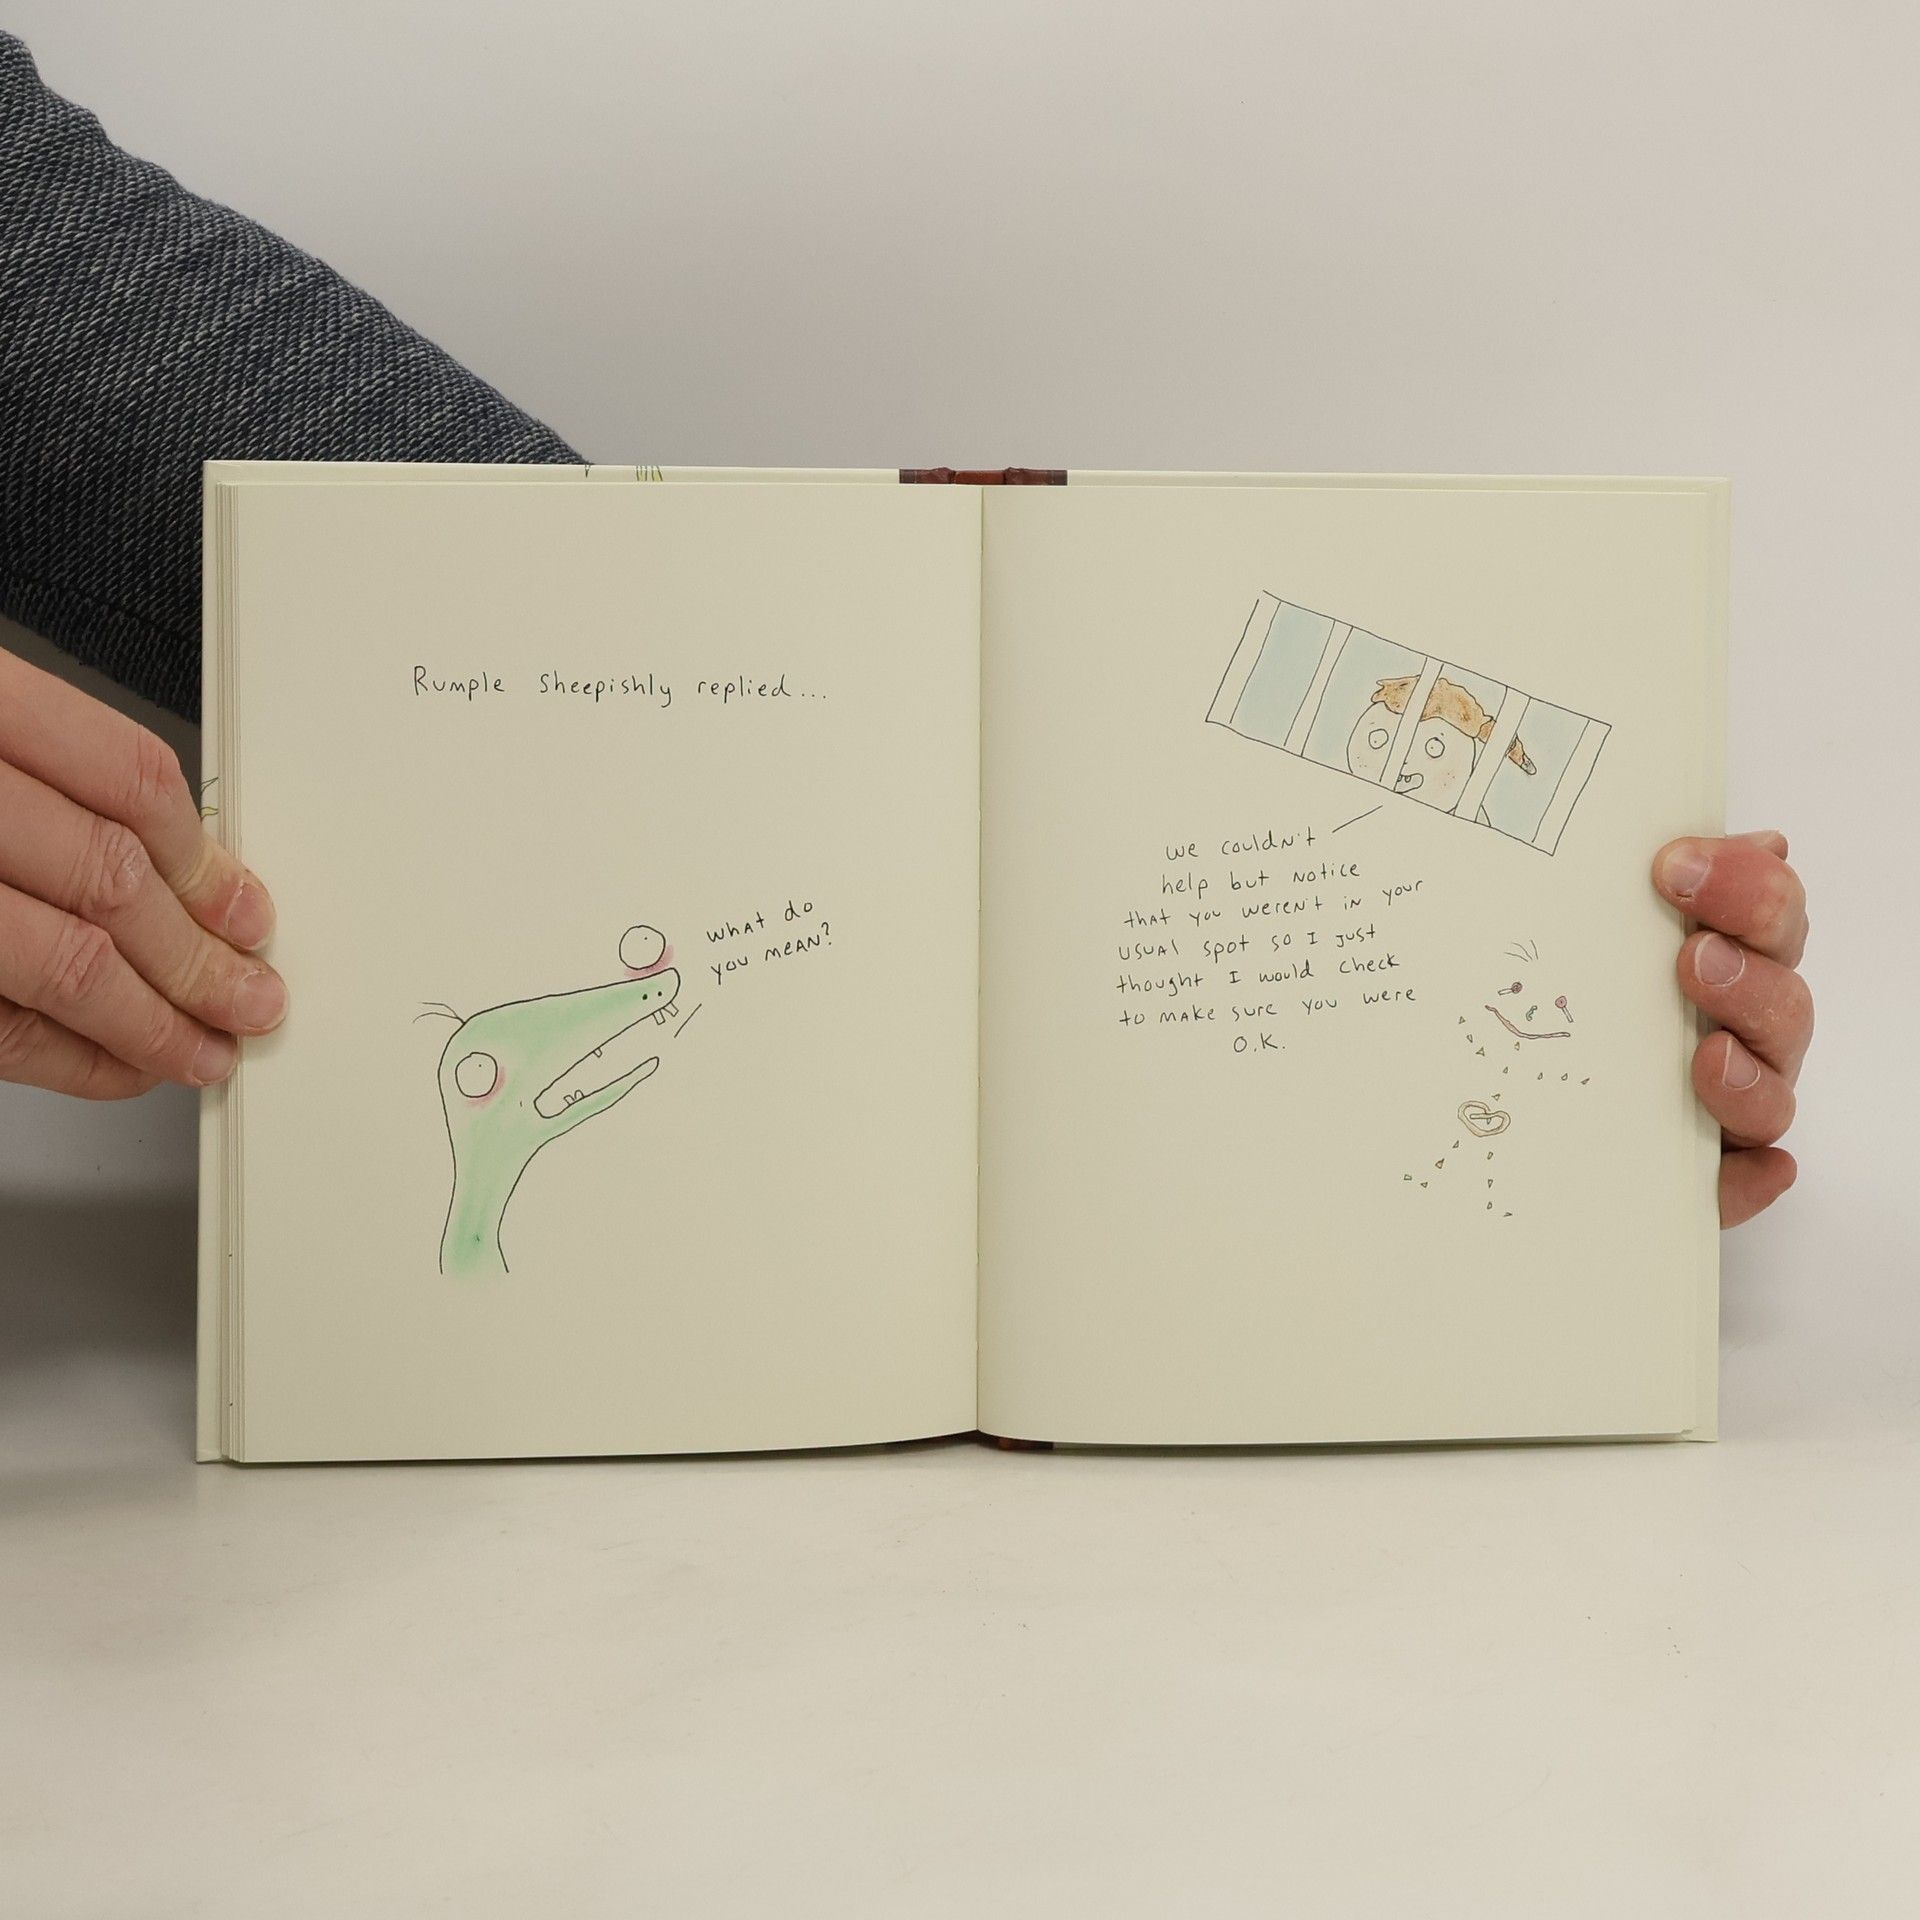 Rumple Sheepishly replied...
What do
you mean?
We couldn't
help but notice
that you weren't in your
usual spot so I just
thought I would check
to make sure you were
O.K.